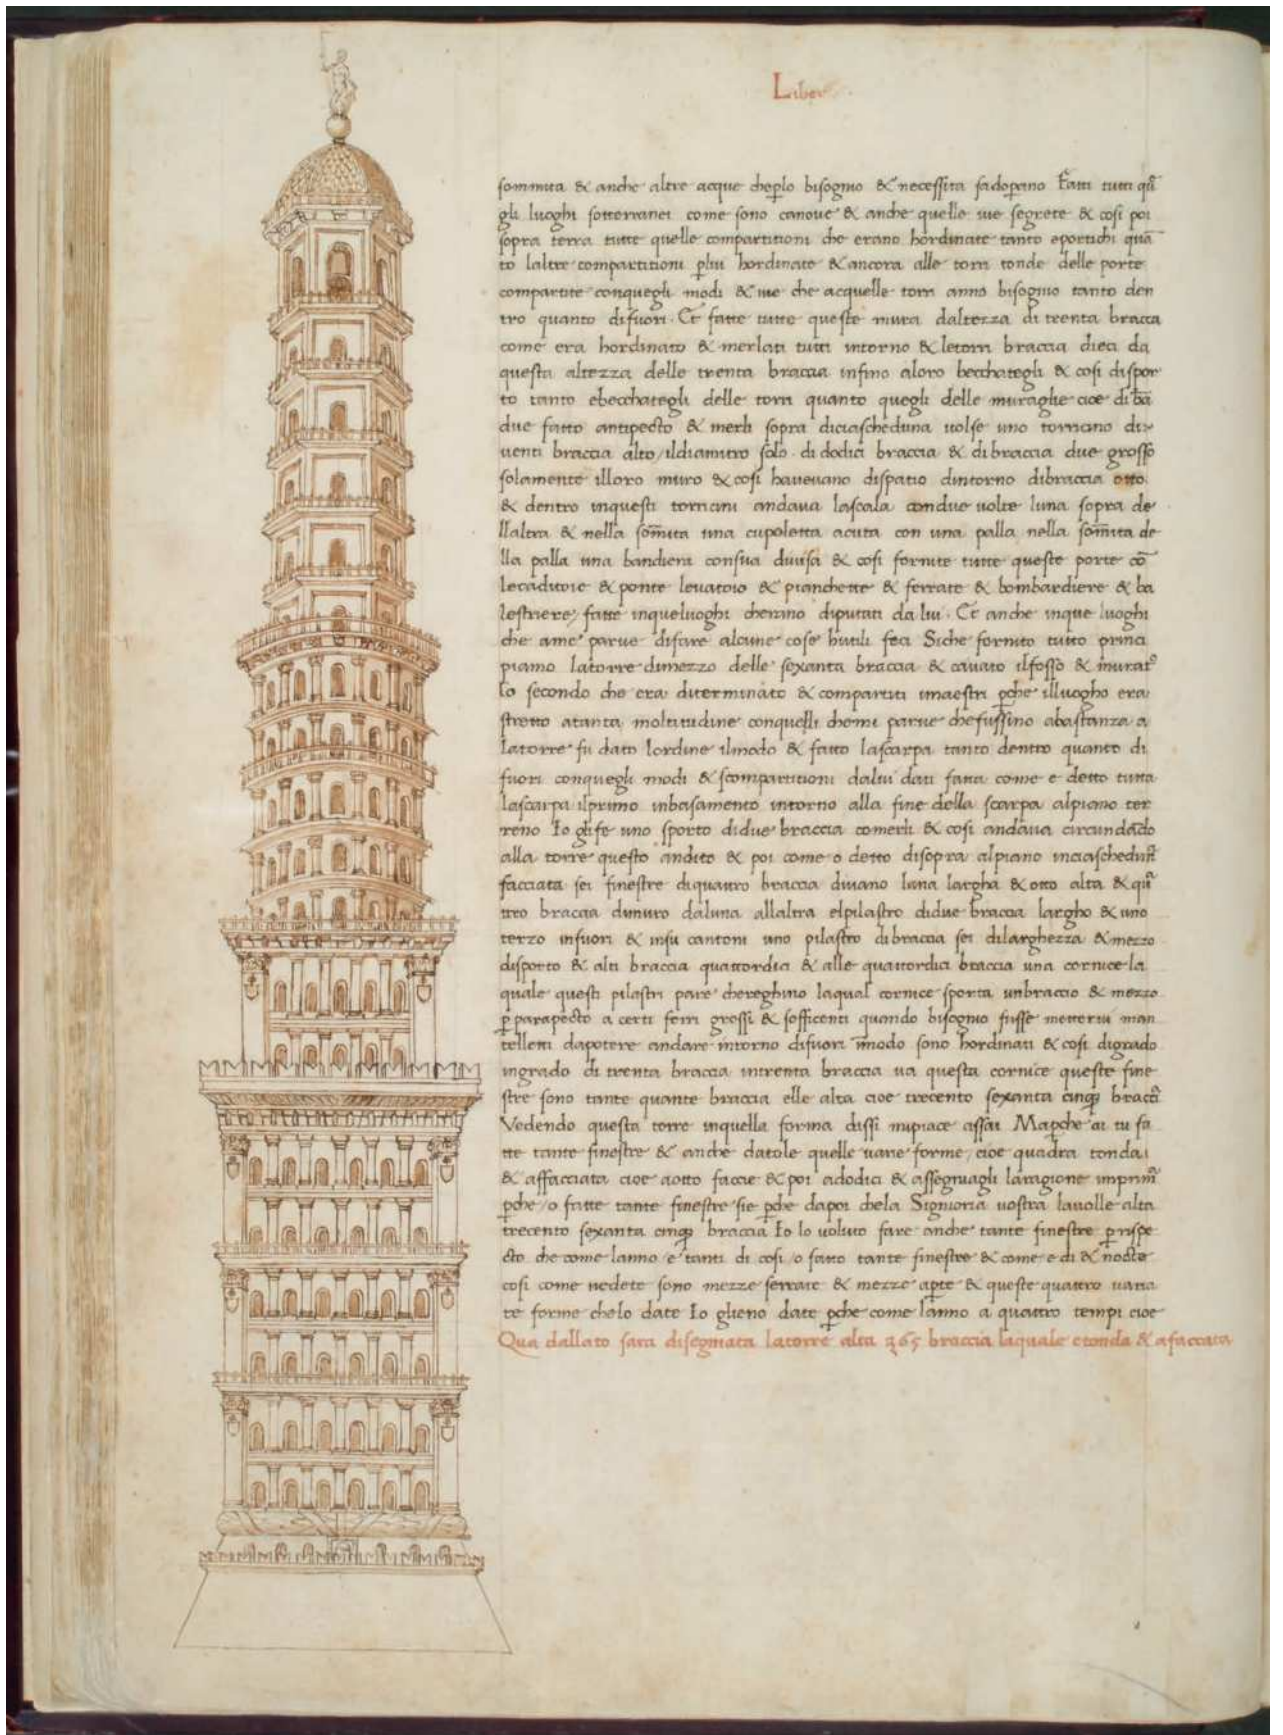 Liber
sommita & anche altre acque cheplo bisogno & necessita sadoperano Fatti tutti q̃
gli luoghi sotterranei come sono canoue & anche quelle uie segrete & cosi poi
sopra terra tutte quelle compartitioni che erano hordinate tanto eportichi quã
to laltre compartitioni plui hordinate & ancora alle torri tonde delle porte
compartite conquegli modi & uie che acquelle torri anno bisogno tanto den
tro quanto difuori. Et fatte tutte queste mura daltezza di trenta bracca
come era hordinato & merlati tutti intorno & letorri braccia dieci da
questa altezza delle trenta braccia infino aloro becchategli & cosi dispor
to tanto ebecchategli delle torri quanto quegli delle muraglie cioe di bã
due fatto antipecto & merli sopra diciascheduna uolse uno torricino di
uenti braccia alto / ildiamitro solo di dodici braccia & dibraccia due grosso
solamente illoro muro & cosi haueuano dispatio dintorno dibraccia otto
& dentro inquesti torricini andaua lascala condue uolte luna sopra de
llaltra & nella som̃ita una cupoletta acuta con una palla nella som̃ita de
lla palla una bandiera consua diuisa & cosi fornite tutte queste porte cõ
lecaditoie & ponte leuatoio & pianchette & ferrate & bombardiere & ba
lestriere, fatte inqueluoghi cherano diputati da lui. Et anche inque luoghi
che ame parue difare alcune cose hutili feci Siche fornito tutto princi
piamo latorre dimezzo delle sexanta braccia & cauato ilfosso & murat°
lo secondo che era diterminato & compartiti imaestri pche illuogho era
stretto atanta moltitudine conquelli chemi parue chefussino abastanza a
latorre fu dato lordine ilmodo & fatto lascarpa tanto dentro quanto di
fuori conquegli modi & scompartitioni dalui dati fatta come e detto tutta
lascarpa ilprimo inbasamento intorno alla fine della scarpa alpiano ter
reno Io glife uno sporto didue braccia comerli & cosi andaua circundãdo
alla torre questo andito & poi come o detto disopra alpiano inciaschedun̄
facciata sei finestre diquattro braccia diuano luna largha & otto alta & qũ
tro braccia dimuro daluna allaltra elpilastro didue braccia largho & uno
terzo infuori & insu cantoni uno pilastro dibraccia sei dilarghezza & mezzo
disporto & alti braccia quattordici & alle quattordici braccia una cornice la
quale questi pilastri pare chereghino laqual cornice sporta unbraccio & mezzo
p parapecto a certi ferri grossi & sofficenti quando bisogno fusse metterui man
telletti dapotere andare intorno difuori ĩmodo sono hordinati & cosi digrado
ingrado di trenta braccia intrenta braccia ua questa cornice queste fine
stre sono tante quante braccia elle alta cioe trecento sexanta cinqȝ bracci
Vedendo questa torre inquella forma dissi mipiace assai Mapche ai tu fa
tte tante finestre & anche datole quelle uarie forme, cioe quadra tonda
& affacciata cioe aotto faccie & poi adodici & assegniagli laragione imprim̃
pche / o fatte tante finestre sie pche dapoi chela Signioria uostra lauolle alta
trecento sexanta cinqȝ braccia Io lo uoluto fare anche tante finestre p rispe
cto che come lanno e tanti di cosi / o fatto tante finestre & come e di & nocte
cosi come uedete sono mezze serrate & mezze apte & queste quattro uaria
te forme chelo date Io glieno date pche come lanno a quattro tempi cioe
Qua dallato sara disegniata latorre alta 365 braccia laquale etonda & afaccata